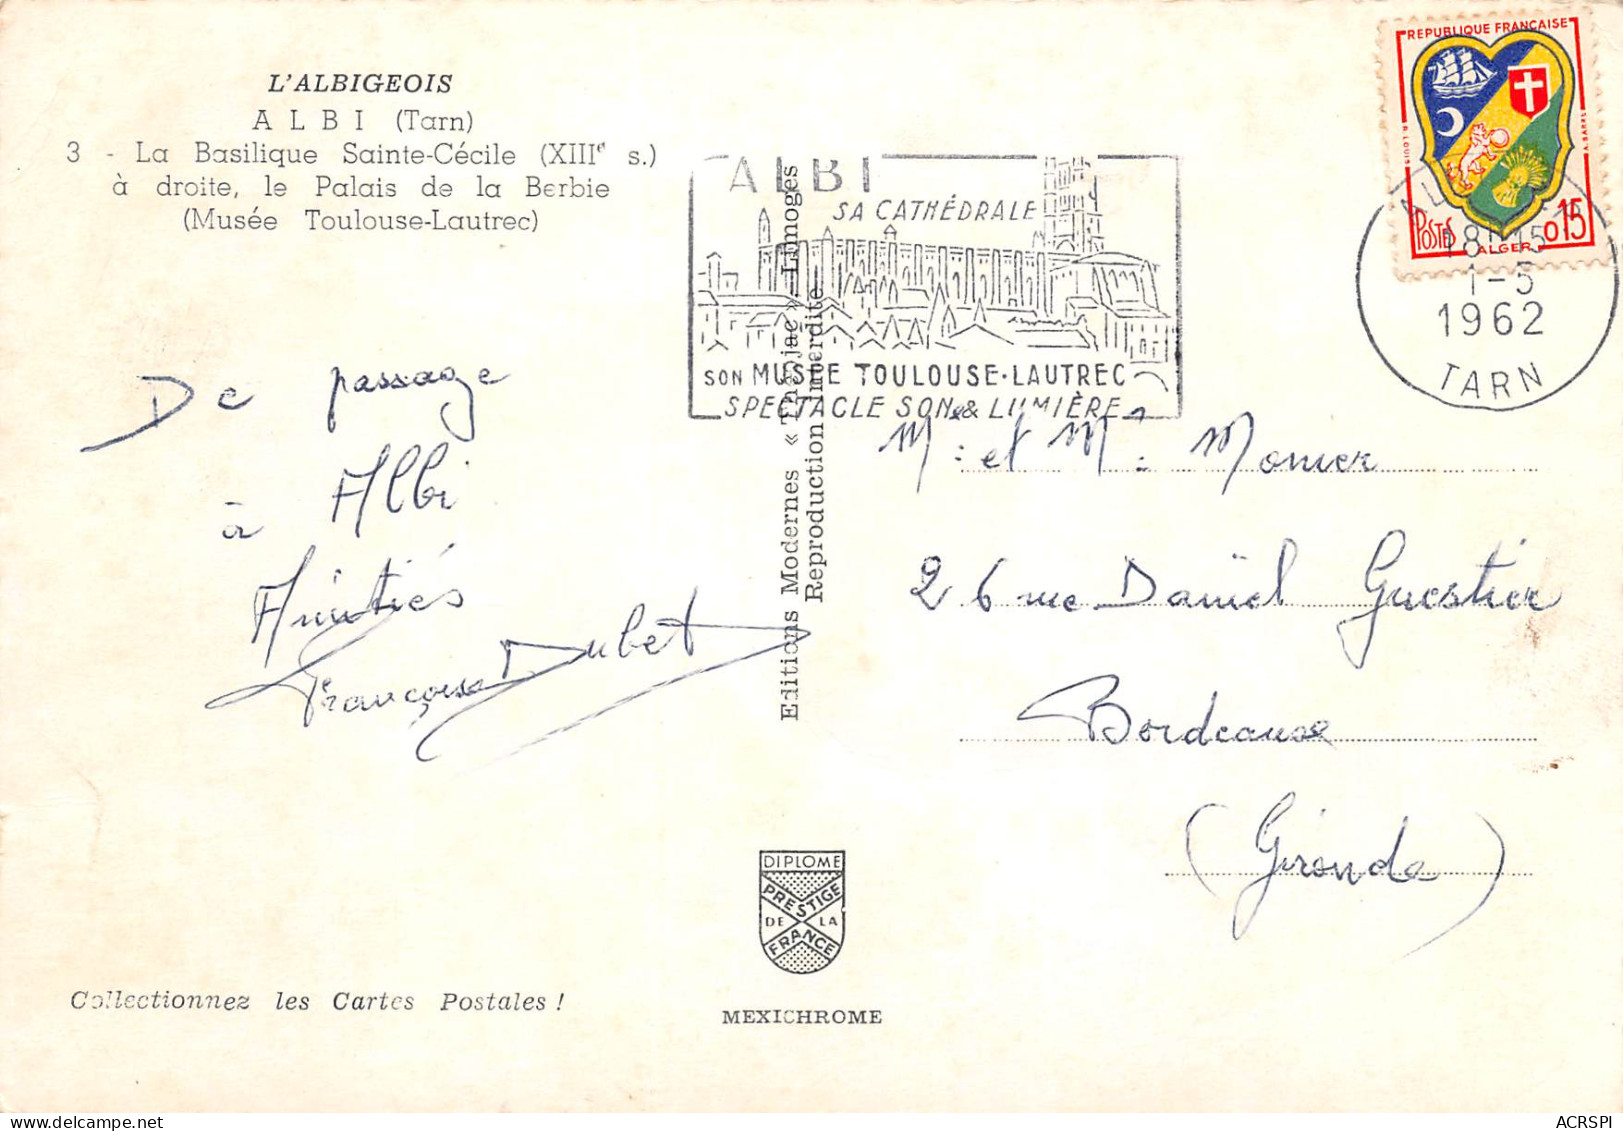 L'ALBIGEOIS
ALBI (Tarn)
3 - La Basilique Sainte-Cécile (XIIIe s.)
à droite, le Palais de la Berbie
(Musée Toulouse-Lautrec)
De passage
à Albi
Amitiés
Françoise Dubet
Collectionnez les Cartes Postales !
Editions Modernes « Théojac » Limoges
Reproduction Interdite
DIPLOME
PRESTIGE
DE LA
FRANCE
MEXICHROME
ALBI
SA CATHÉDRALE
SON MUSÉE TOULOUSE-LAUTREC
SPECTACLE SON & LUMIÈRE
REPUBLIQUE FRANÇAISE
POSTES
ALGER
0,15
18H15
1-5
1962
TARN
Mr et Me Monier
26 rue Daniel Guestier
Bordeaux
(Gironde)
ACRSPI
https://www.delcampe.net